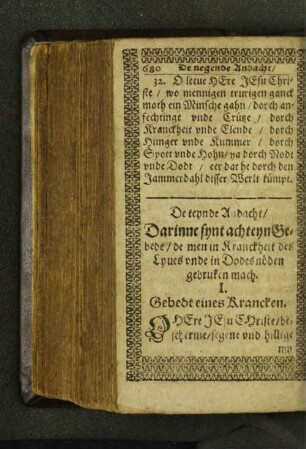 680 De negende Andacht/
32. O leeue HEre JEsu Chri-
ste / wo mennigen trurigen ganck
moth ein Minsche gahn / dorch an-
fechtinge vnde Crütze / dorch
Kranckheit vnde Elende / dorch
Hunger vnde Kummer / dorch
Spott vnde Hohn / ya dorch Nodt
vnde Dodt / eer dat he dorch den
Jammerdahl disser Werlt kümpt.
De teynde Andacht/
Darinne synt achteyn Ge-
bede / de men in Kranckheit des
Lyues vnde in Dodes nöden
gebruken mach.
I.
Gebedt eines Krancken.
O HEre JEsu CHriste / be-
scherme / segene vnd hillige
my